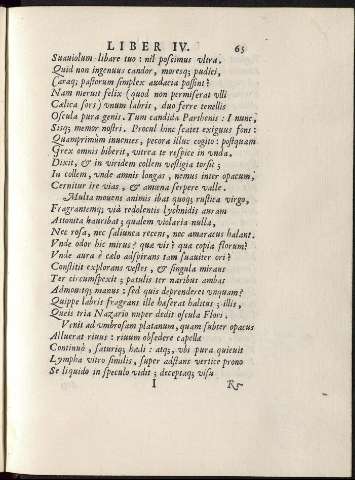 LIBER IV. 65
Suauiolum libare tuo : nil poscimus vltra.
Quid non ingenuus candor, moresq; pudici,
Caraq; pastorum simplex audacia possint?
Nam meruit felix (quod non permiserat vlli
Cælica sors) vnum labris, duo ferre tenellis
Oscula pura genis. Tum candida Parthenis : I nunc,
Sisq; memor nostri. Procul hinc scatet exiguus fons :
Quamprimùm inuenies, pecora illuc cogito : postquam
Grex omnis biberit, vitrea te respice in vnda.
Dixit, & in viridem collem vestigia torsit ;
In collem, vnde amnis longas, nemus inter opacum,
Cernitur ire vias, & amœna serpere valle.
Multa mouens animis ibat quoq; rustica virgo,
Fragrantemq; viâ redolentis lychnidis auram
Attonita hauribat; qualem violaria nulla,
Nec rosa, nec saliunca recens, nec amaracus halant.
Vnde odor hic mirus? quæ vis? quæ copia florum?
Vnde aura è cælo adspirans tam suauiter ori?
Constitit explorans vestes, & singula mirans
Ter circumspexit ; patulis ter naribus ambas
Admouitq; manus : sed quis deprenderet vnquam?
Quippe labris fragrans ille hæserat halitus ; illis,
Queis tria Nazario nuper dedit oscula Flori.
Venit ad vmbrosam platanum, quam subter opacus
Alluerat riuus : riuum obsedere capellæ
Continuò, saturiq; hædi : atq; vbi pura quieuit
Lympha vitro similis, super adstans vertice prono
Se liquido in speculo vidit ; deceptaq; visu
I